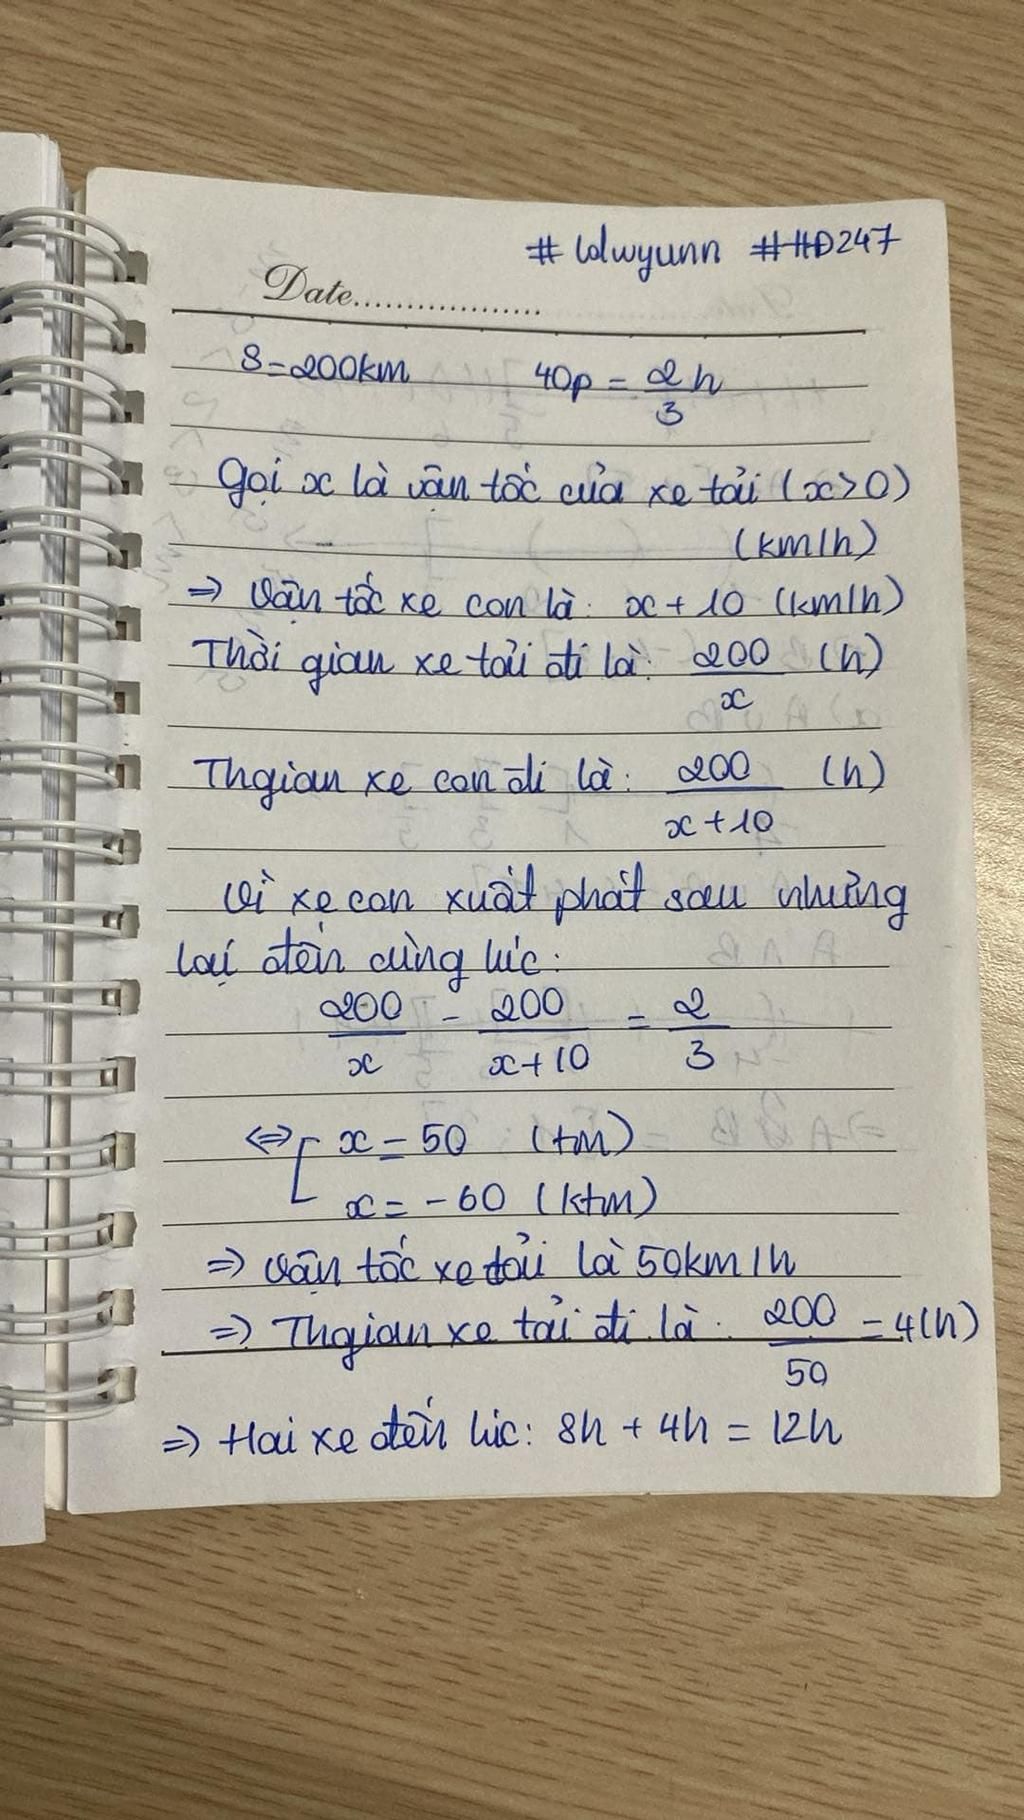 # ldwyunn #HĐ247
Date..................
S=200km 40p = 2/3 h
Gọi x là vận tốc của xe tải (x>0)
(km/h)
=> Vận tốc xe con là: x + 10 (km/h)
Thời gian xe tải đi là: 200/x (h)
Thgian xe con đi là: 200/(x+10) (h)
Vì xe con xuất phát sau nhưng
lại đến cùng lúc:
200/x - 200/(x+10) = 2/3
<=> [ x = 50 (tm)
x = -60 (ktm)
=> Vận tốc xe tải là 50km/h
=> Thgian xe tải đi là: 200/50 = 4(h)
=> Hai xe đến lúc: 8h + 4h = 12h